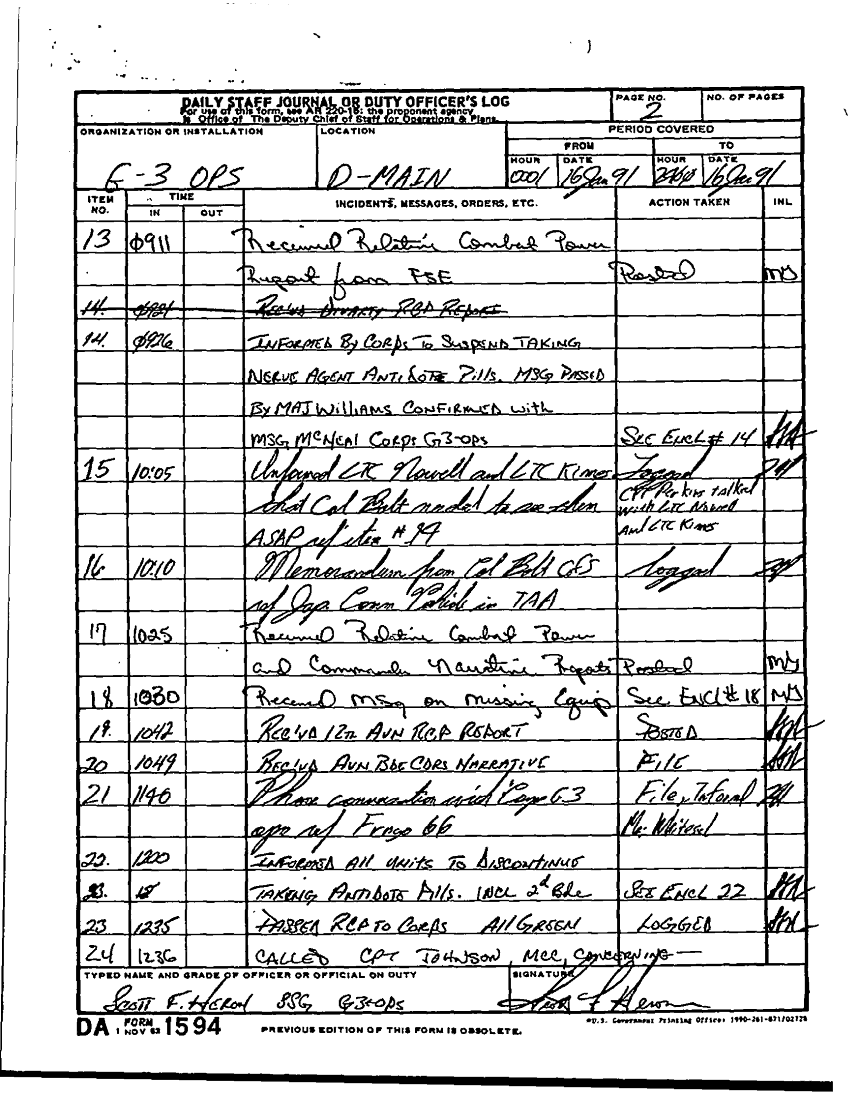 DAILY STAFF JOURNAL OR DUTY OFFICER'S LOG
For use of this form, see AR 220-15: the proponent agency
is Office of The Deputy Chief of Staff for Operations & Plans.
PAGE NO.
2
NO. OF PAGES
ORGANIZATION OR INSTALLATION
G-3 OPS
LOCATION
D-MAIN
PERIOD COVERED
FROM
TO
HOUR
0001
DATE
16 Jan 91
HOUR
2400
DATE
16 Jan 91
ITEM NO.
TIME
IN
OUT
INCIDENTS, MESSAGES, ORDERS, ETC.
ACTION TAKEN
INL
13 0911 Received Relative Combat Power
Report from FSE Posted MJ
14. 0921 REC'VD DIVARTY RCP REPORT
14. 0926 INFORMED BY CORPS TO SUSPEND TAKING
NERVE AGENT ANTIDOTE PILLS. MSG PASSED
BY MAJ WILLIAMS CONFIRMED WITH
MSG MCNEAL CORPS G3-OPS SEE ENCL # 14
15 10:05 Informed LTC Nowell and LTC Kims Logged
that Col Bolt needed to see them CPT Perkins talked
with LTC Nowell
ASAP ref item # 14 And LTC Kims
16 10:10 Memorandum from Col Bolt C/S logged
ref Jap. Comm Vehicle in TAA
17 1025 Received Relative Combat Power
and Commanders Narrative Reports Posted MJ
18 1030 Received MSg on missing Equip See ENCl # 18 MJ
19. 1042 REC'VD 12th AVN RCP REPORT POSTED
20 1049 REC'VD AVN BDE CDRS NARRATIVE FILE
21 1140 Phone conversation with Corps G3 File, Inform
ops ref Frago 66
22. 1200 INFORMED All UNITS TO DISCONTINUE
23. 12 TAKING ANTIDOTE PIlls. INCL 2d Bde SEE ENCL 22
23 1235 PASSED RCP TO CORPS All GREEN LOGGED
24 1236 CALLED CPT JOHNSON, MCC, CONCERNING
TYPED NAME AND GRADE OF OFFICER OR OFFICIAL ON DUTY
SCOTT F. HERON SSG G3-OPS
SIGNATURE
Scott F Heron
DA FORM 1 NOV 62 1594
PREVIOUS EDITION OF THIS FORM IS OBSOLETE.
*U.S. Government Printing Office: 1990-261-871/02778